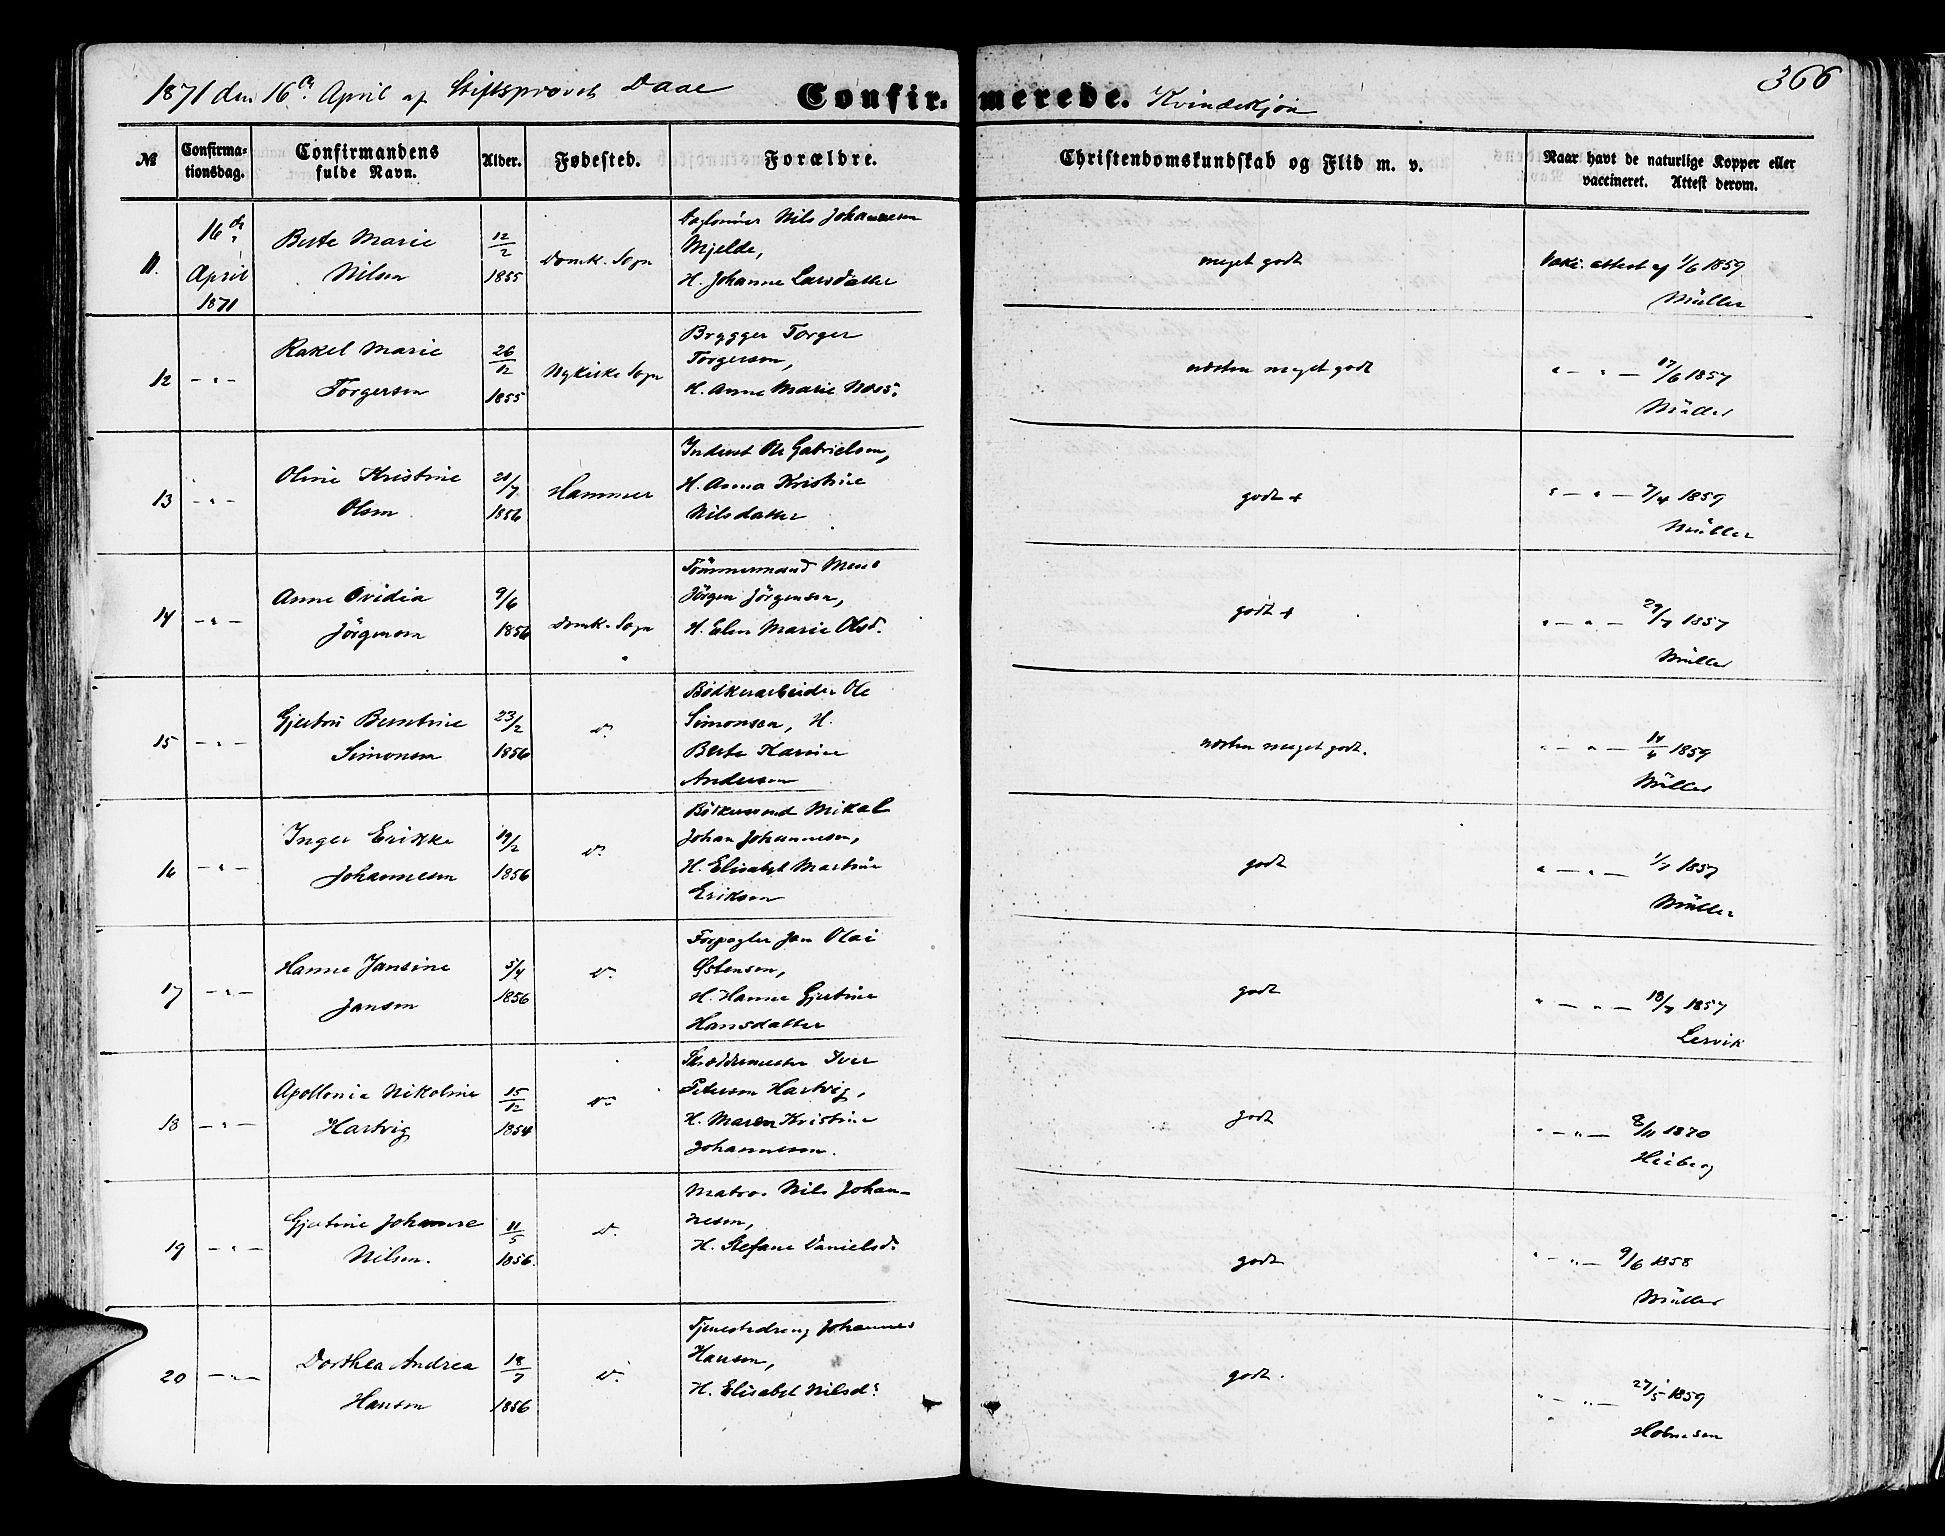 1871 den 16de April af Stiftsprovst Daae
Confirmerede. Kvindekjøn
366
№ Confirmationsdag. Confirmandens fulde Navn. Alder. Fødested. Forældre. Christendomskundskab og Flid m. v. Naar havt de naturlige Kopper eller vaccineret. Attest derom.
11. 16de April 1871 Berte Marie Nilsen 12/2 1855 Domk. Sogn
Nils Johannesen
Mjelde,
H. Johanne Larsdatter
meget godt
Vakc. attest af 1/6 1859
Müller
12 -"- Rakel Marie Torgersen 26/12 1855 Nykirke Sogn
Brygger Torger
Torgersen,
H. Anne Marie Næss.
næsten meget godt
" - " - 17/6 1857
Müller
13 -"- Oline Kristine Olsen 21/7 1856 Hammer
Inderst Ole Gabrielsen,
H. Anna Kristine
Nilsdatter
godt +
" - " - 7/4 1859
Müller
14 -"- Anne Ovidia Jörgensen 9/6 1856 Domk. Sogn
Tömmermand Mons
Jörgen Jörgensen,
H. Elen Marie Olsd.
godt +
" - " - 29/7 1857
Müller
15 -"- Gjertrü Berntine Simonsen 23/2 1856 do.
Bödkerarbeider Ole
Simonsen, H.
Berte Karine
Andersen
næsten meget godt.
" - " - 14/4 1859
Müller
16 -"- Inger Erikke Johannesen 19/2 1856 do.
Bödkersvend Mikal
Johan Johannesen,
H. Elisabet Martine
Eriksen
godt
" - " - 1/7 1857
Müller
17 -"- Hanne Jansine Jansen 5/4 1856 do.
Forpagter Jan Olai
Østensen,
H. Hanne Gjertine
Hansdatter
godt
" - " - 18/7 1857
Lervik
18 -"- Apollonia Nikoline Hartvig 15/12 1854 do.
Skræddermester Iver
Petersen Hartvig,
H. Maren Kristine
Johannesen.
godt
" - " - 8/11 1870
Heiberg
19 -"- Gjertine Johanne Nilsen. 11/5 1856. do.
Matros Nils Johan-
nesen,
H. Stefane Danielsd.
godt
" - " - 9/6 1858
Müller
20 -"- Dorthea Andrea Hansen 18/7 1856 do.
Tjenestedreng Johannes
Hansen,
H. Elisabet Nilsd.
godt.
" - " - 27/5 1859
Holmesen